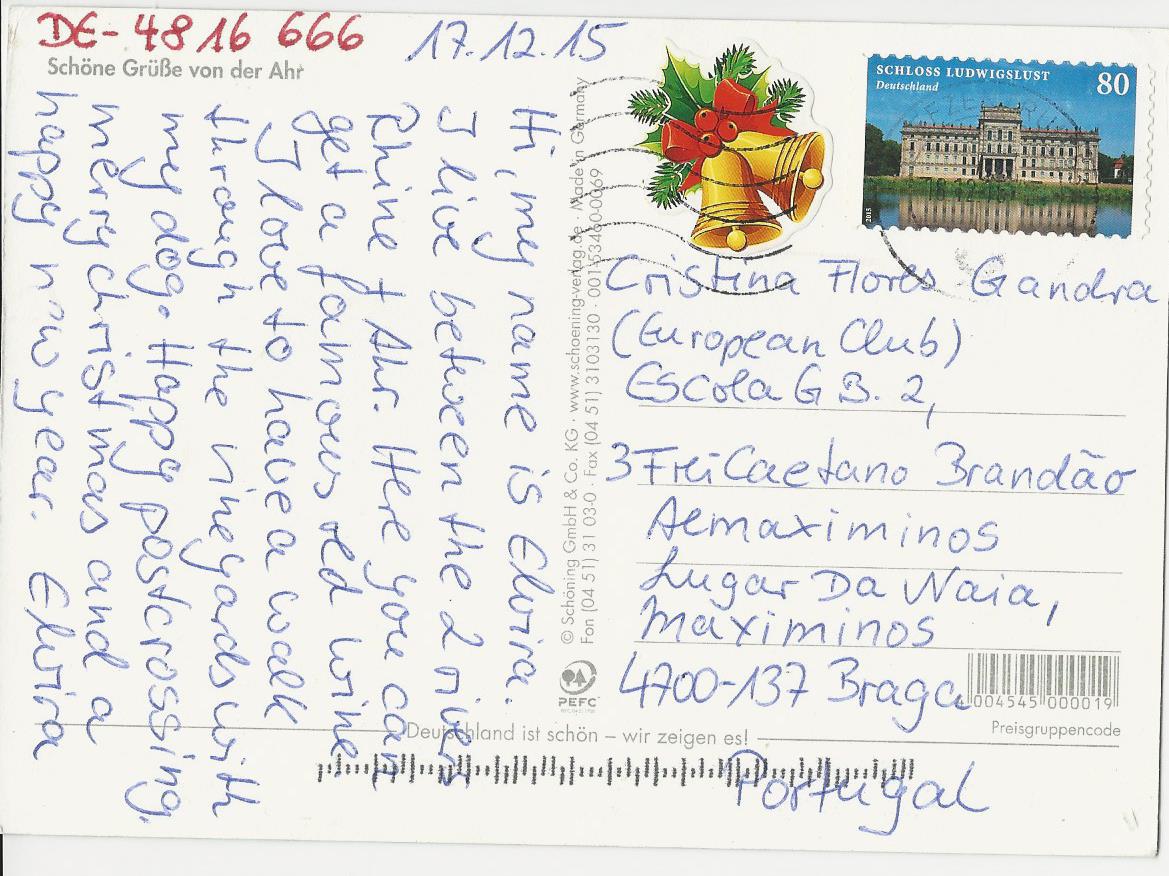 DE-4816 666
17.12.15
Schöne Grüße von der Ahr
Hi, my name is Elvira.
I live between the 2 rivers
Rhine + Ahr. Here you can
get a famous red wine
I love to have a walk
through the vinegards with
my dog. Happy postcrossing.
merry christmas and a
happy new year. Elvira
© Schöning GmbH & Co. KG · www.schoening-verlag.de · Made in Germany
Fon (04 51) 31 03-0 · Fax (04 51) 3103130 · 001-53460-0069
PEFC
SCHLOSS LUDWIGSLUST
Deutschland
80
2015
Cristina Flores Gandra
(European Club)
Escola G B. 2,
3 Frei Caetano Brandão
Aemaximinos
Lugar Da Naia,
Maximinos
4700-137 Braga
4 004545 000019
Preisgruppencode
Deutschland ist schön – wir zeigen es!
Portugal